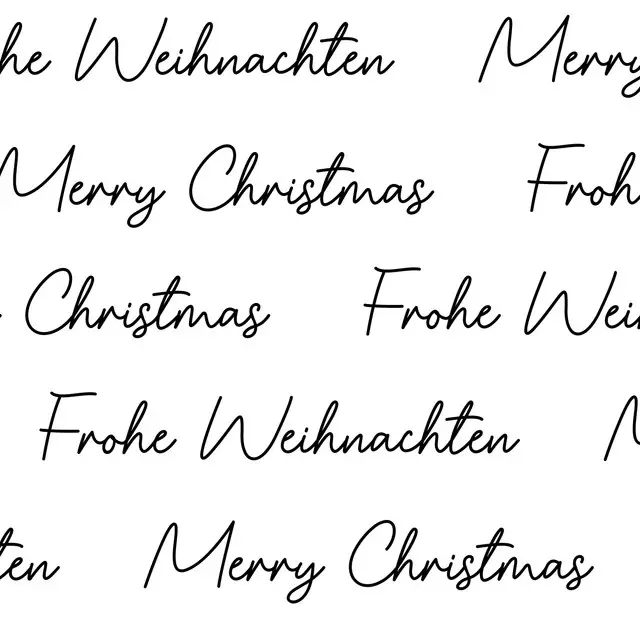 he Weihnachten Merry
Merry Christmas Froh
Christmas Frohe Wei
Frohe Weihnachten M
ten Merry Christmas